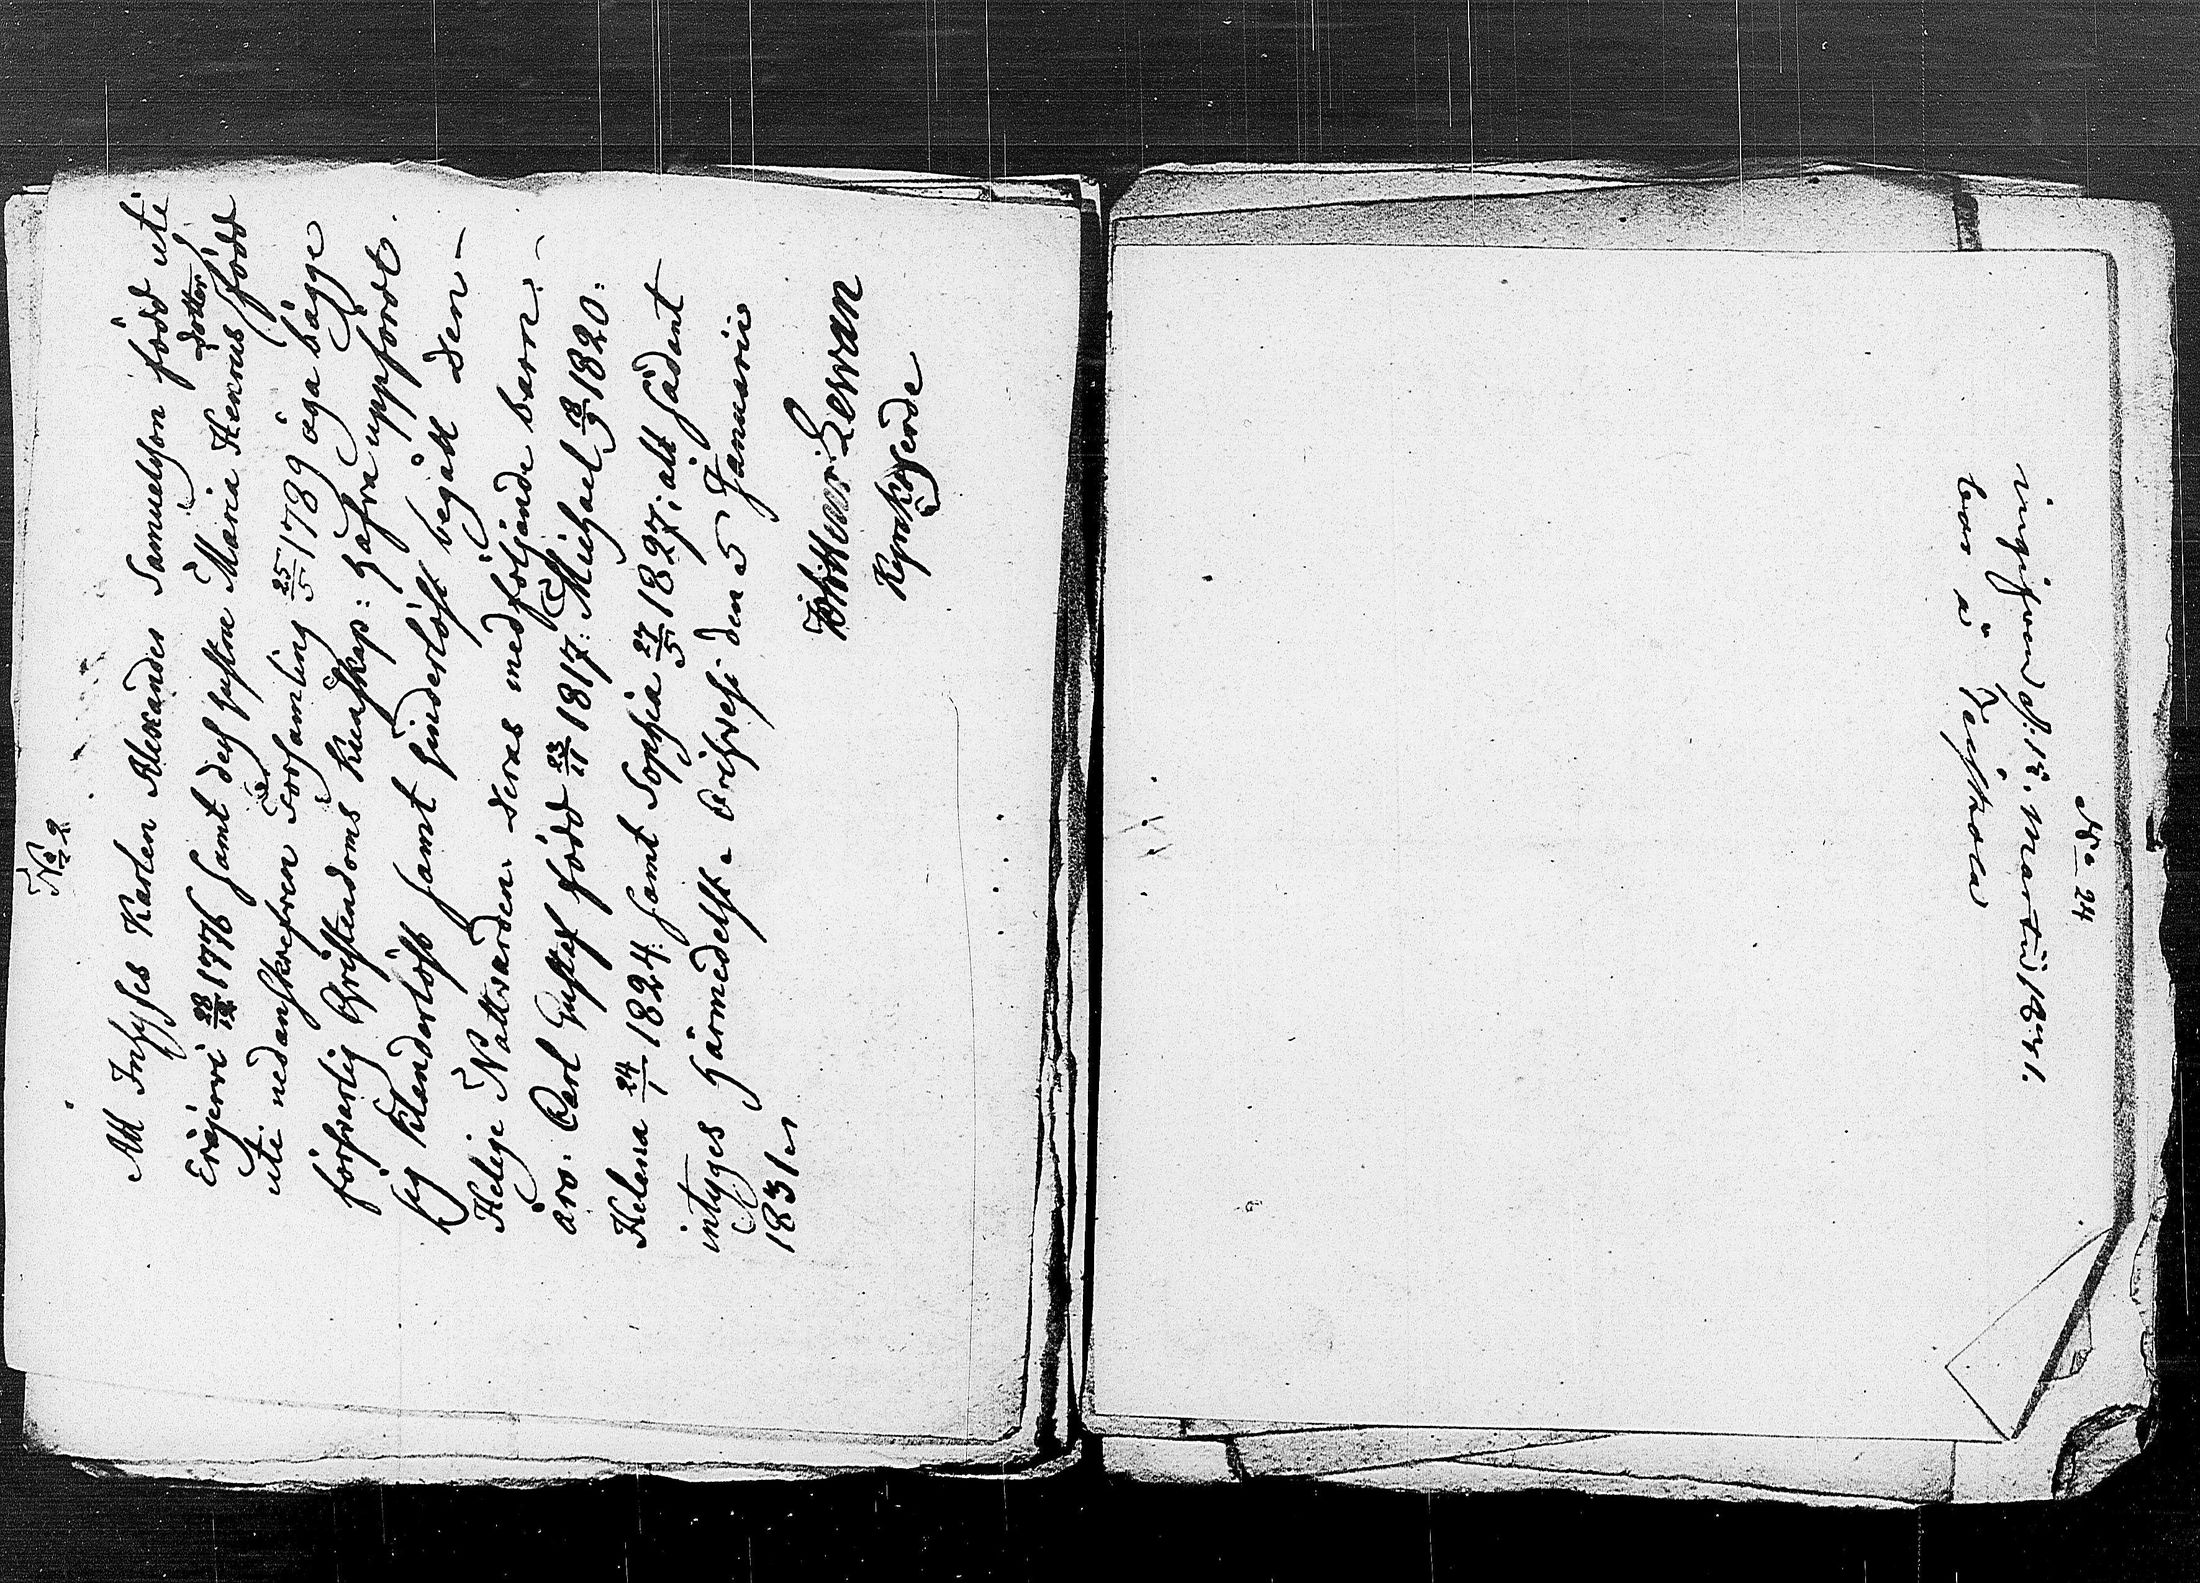 No 2
Att Inhyses Karlen Alexander Samuelsson född uti
Eräjervi 28/12 1776 samt dess hustru Maria Henriks dotter född
uti nedanskrefven Församling 25/5 1789 äga bägge
försvarlig Christendoms kunskap: hafva uppfördt
sig klanderlöst samt hinderlöst begått den
Helige Nattvarden. deras medföljande barn
äro: Carl Gustaf född 23/11 1817: Michael 8/9 1820:
Helena 24/1 1824: samt Sophia 27/5 1827; allt sådant
intyges härmedelst. Orihvesi den 5 Januarii
1831
Lewan
No 24
ingifvend. d. 12 Martii 1831.